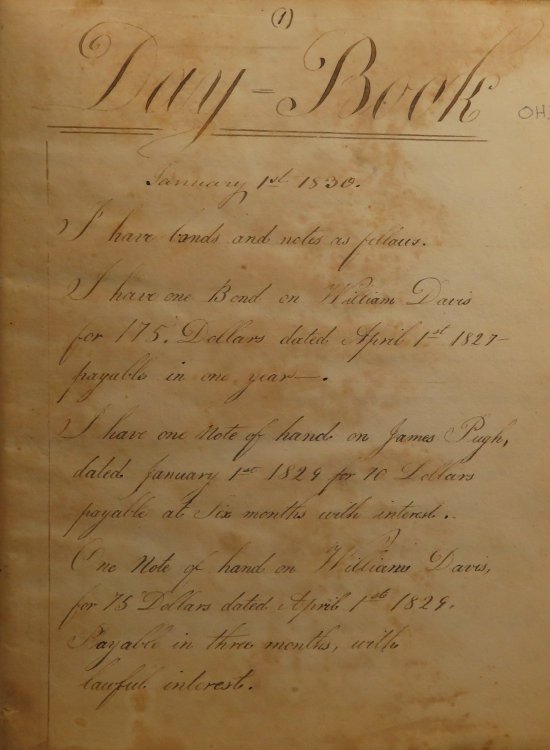 (1)
Day-Book
OH
January 1st 1830.
I have bonds and notes as follows.
I have one Bond on William Davis
for 175. Dollars dated April 1st 1827
payable in one year—.
I have one Note of hand on James Pugh,
dated January 1st 1829 for 70 Dollars
payable at Six months with interest..
One Note of hand on William Davis,
for 75 Dollars dated April 1st 1829.
Payable in three months, with
lawful interest.